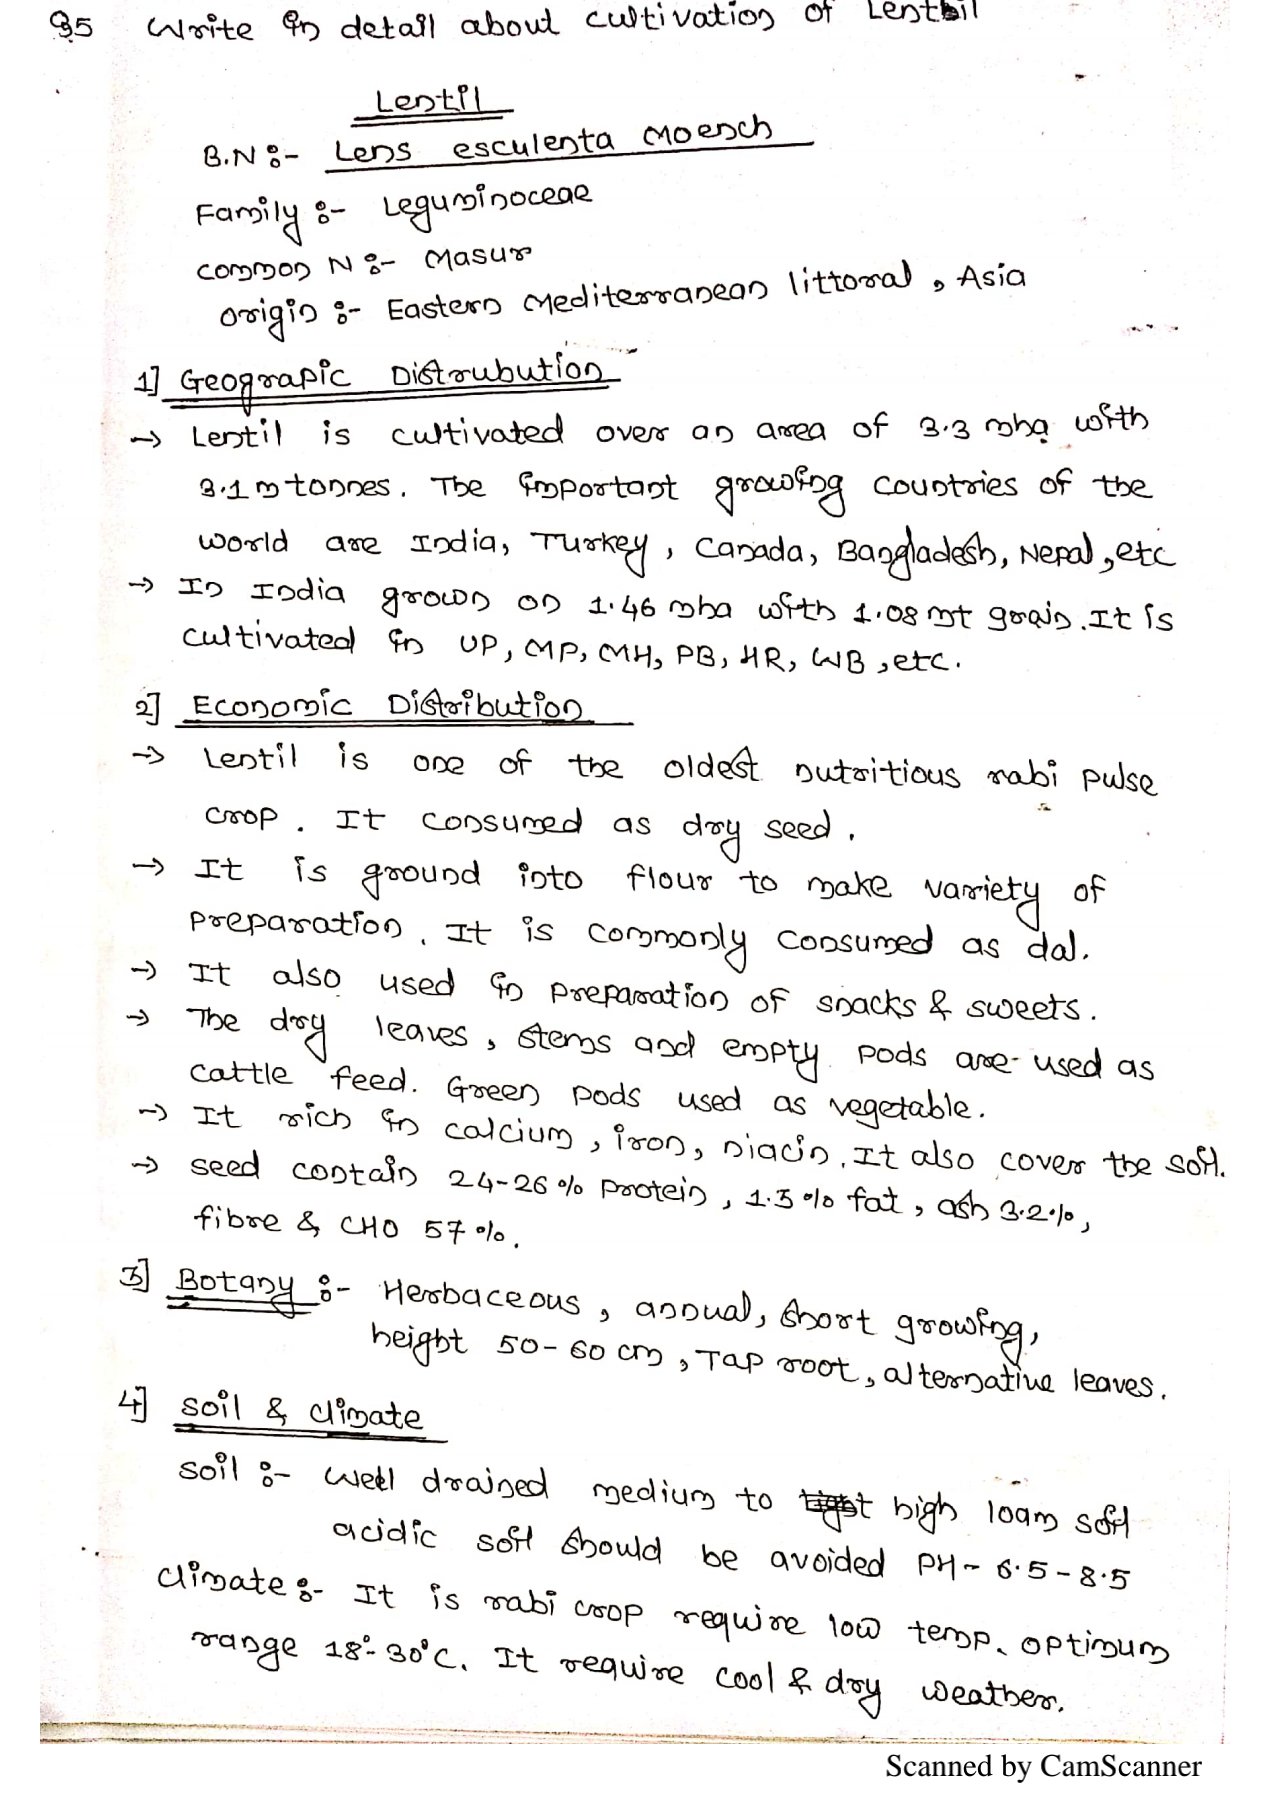 Q5 Write in detail about cultivation of Lentil
Lentil
B.N :- Lens esculenta Moench
Family :- Leguminoceae
Common N :- Masur
Origin :- Eastern Mediterranean littoral, Asia
1] Geograpic Distrubution
→ Lentil is cultivated over an area of 3.3 mha with
3.1 m tonnes. The important growing countries of the
world are India, Turkey, Canada, Bangladesh, Nepal, etc
→ In India grown on 1.46 mha with 1.08 mt grain. It is
cultivated in UP, MP, MH, PB, HR, WB, etc.
2] Economic Distribution
→ Lentil is one of the oldest nutritious rabi pulse
crop. It consumed as dry seed.
→ It is ground into flour to make variety of
preparation. It is commonly consumed as dal.
→ It also used in preparation of snacks & sweets.
→ The dry leaves, stems and empty pods are used as
cattle feed. Green pods used as vegetable.
→ It rich in calcium, iron, niacin. It also cover the soil.
→ seed contain 24-26% protein, 1.3% fat, ash 3.2%,
fibre & CHO 57%.
3] Botany :- Herbaceous, annual, short growing,
height 50-60 cm, Tap root, alternative leaves.
4] Soil & Climate
Soil :- Well drained medium to high loam soil
acidic soil should be avoided PH - 6.5 - 8.5
Climate :- It is rabi crop require low temp. optimum
range 18°-30°C. It require cool & dry weather.
Scanned by CamScanner